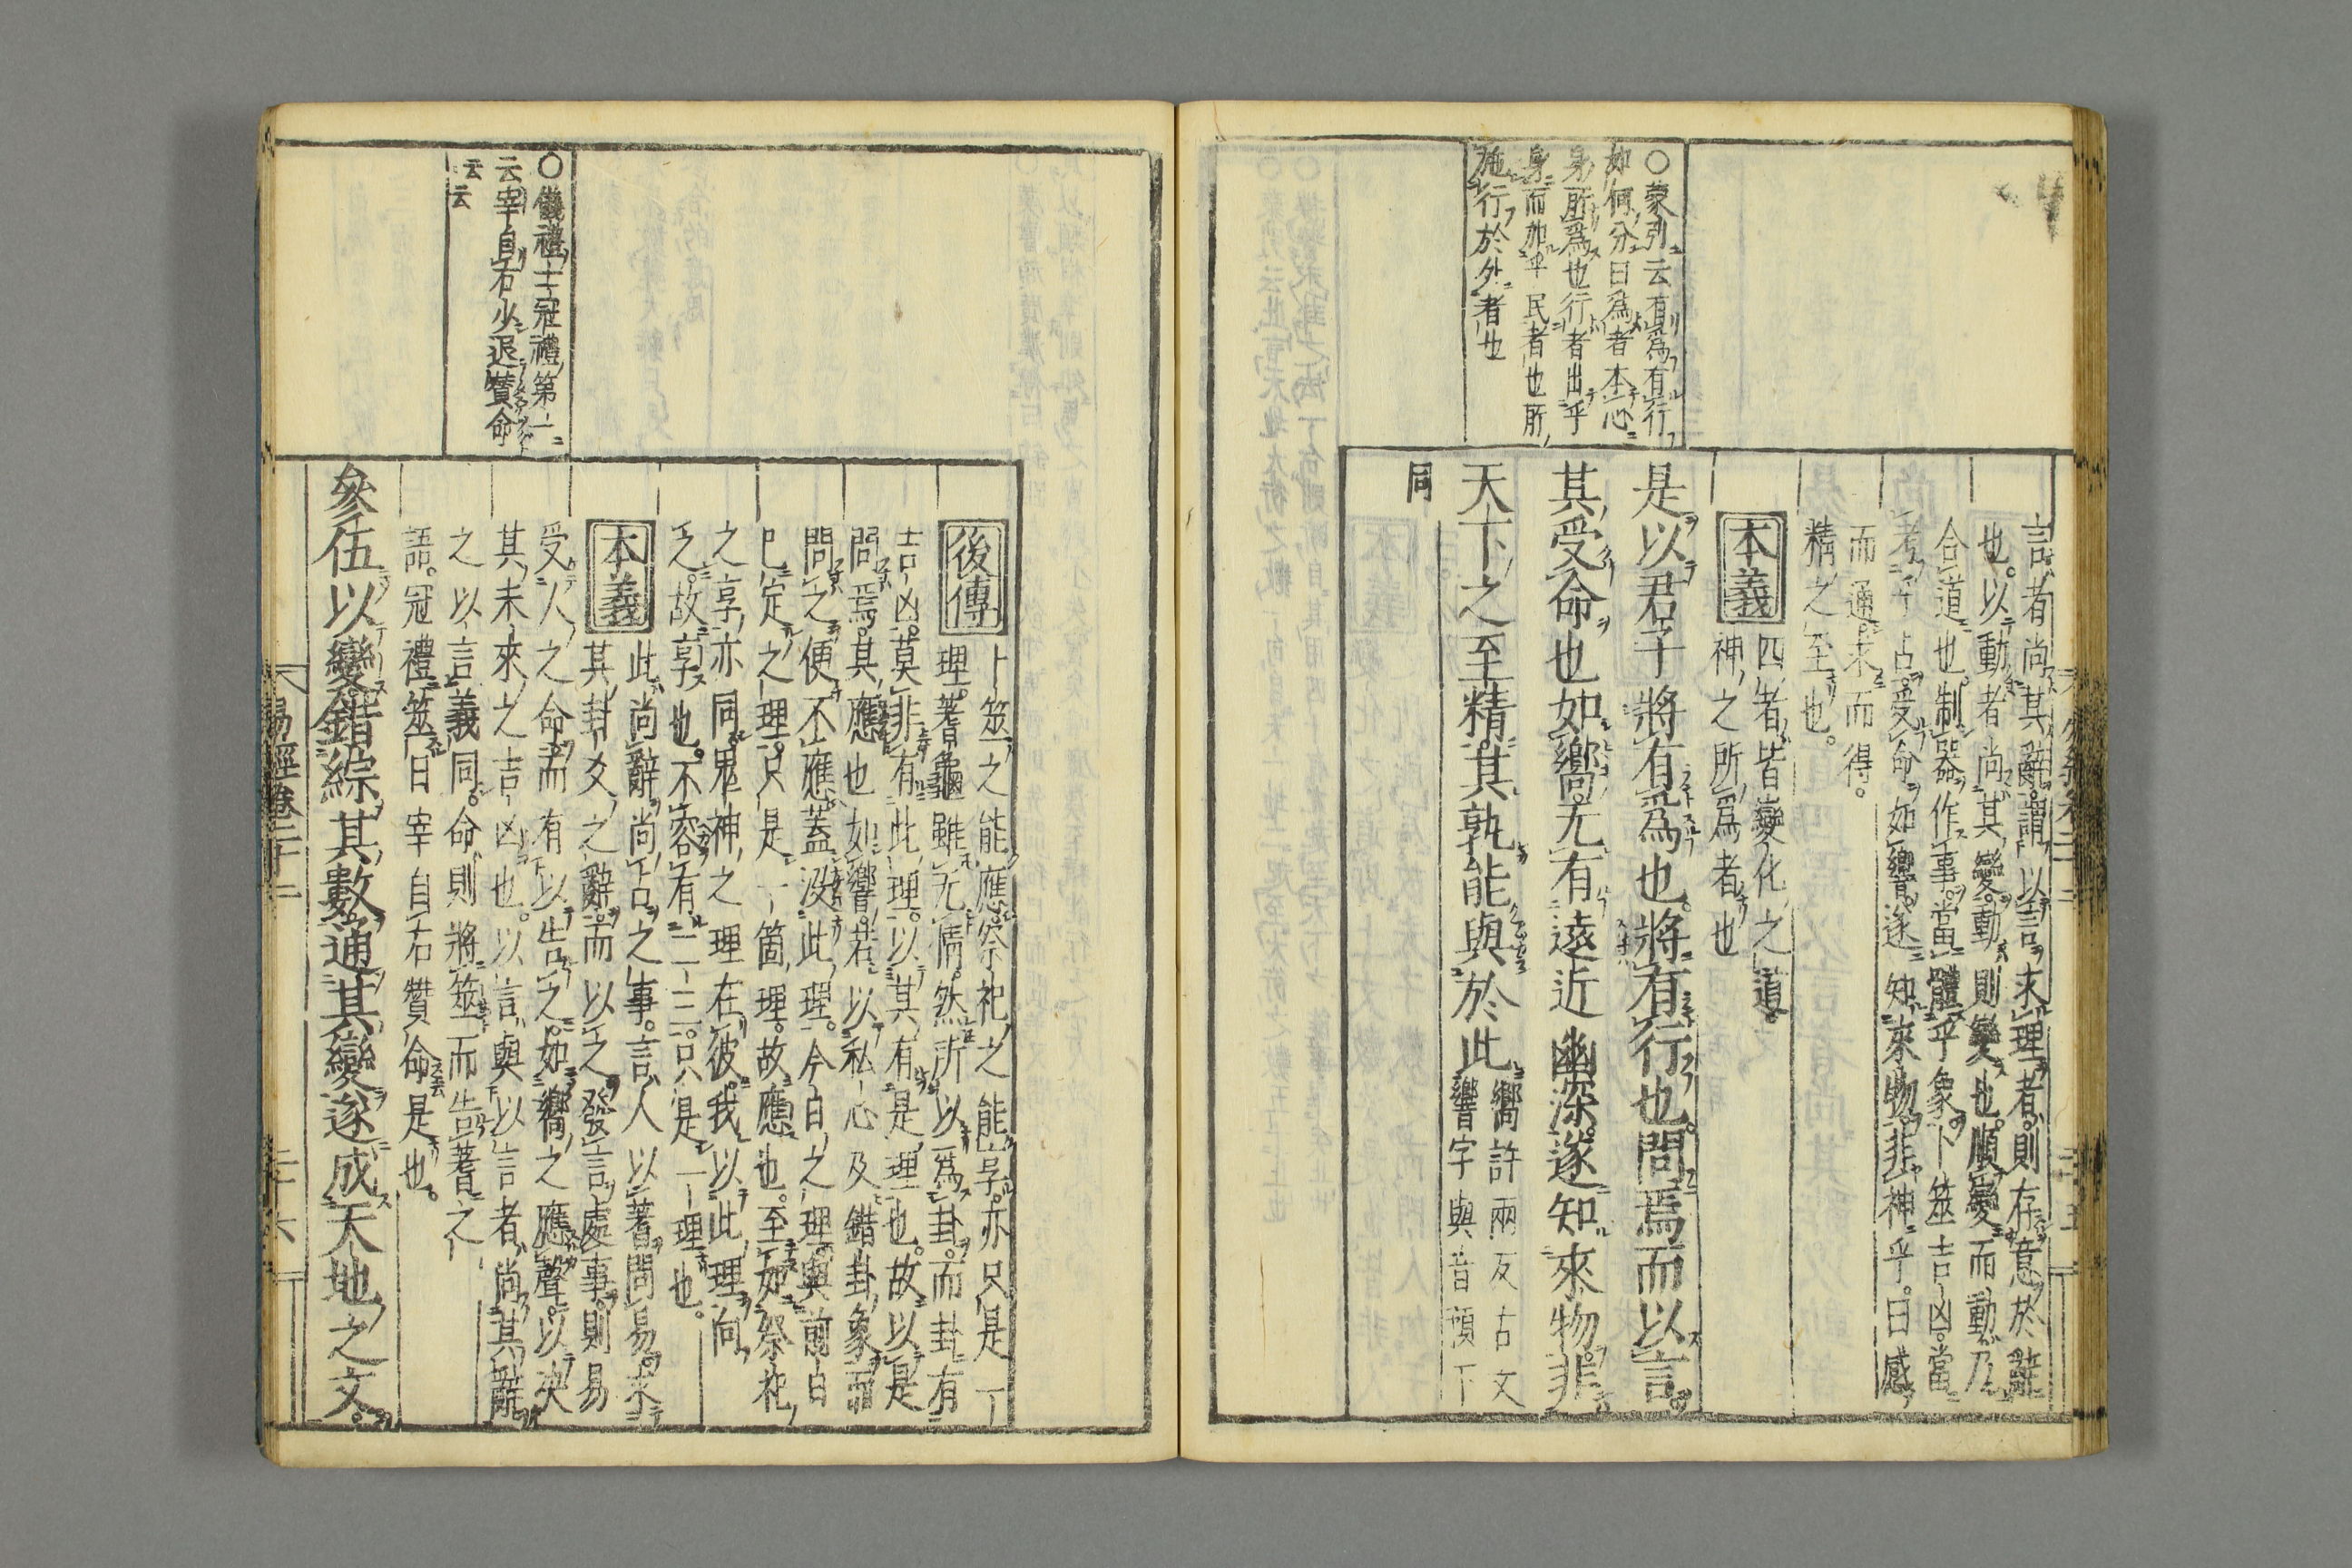 ○蒙引云有爲有行
如何分曰爲者本心
身所爲也行者出乎
身而加乎民者也所
施行於外者也
言者尚其辭謂以言求理者則存意於辭
也。以動者尚其變動則變也。順變而動乃
合道也。制器作事。當體乎象。卜筮吉凶。當
考乎占。受命如響。遂知來物。非神乎。曰感
而通。求而得。
精之至也。
本義
四者皆變化之道。
神之所爲者也
是以君子將有爲也。將有行也。問焉而以言。
其受命也如嚮。无有遠近幽深。遂知來物。非
天下之至精。其孰能與於此
嚮許兩反古文
響字與音預下
同
○儀禮士冠禮第一
云宰自右少退贊命
云云
後傳
卜筮之能應。祭祀之能享。亦只是一
理。蓍龜雖无情。然所以爲卦。而卦有
吉凶。莫非有此理。以其有是理也。故以是
問焉。其應也如響。若以私心及錯卦象而
問之便不應。蓋沒此理。今日之理與前日
已定之理。只是一箇理。故應也。至如祭祀
之享亦同。鬼神之理在彼。我以此理向
之。故享也。不容有二三。只是一理也。
本義
此尚辭尚占之事。言人以蓍問易。求
其卦爻之辭。而以之發言處事。則易
受人之命而有以告之。如嚮之應聲。以決
其未來之吉凶也。以言與以言者尚其辭
之以言義同。命則將筮而告蓍之
語。冠禮筮日宰自右贊命是也。
參伍以變。錯綜其數。通其變。遂成天地之文。
易經卷二十二
二十六